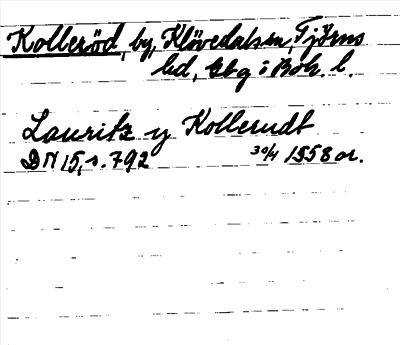 Kolleröd, by, Klövedals sn, Tjörns
hd, Gbg o Boh. l.
Lauritz y Kollerudt
DN 15, s. 792 30/4 1558 or.